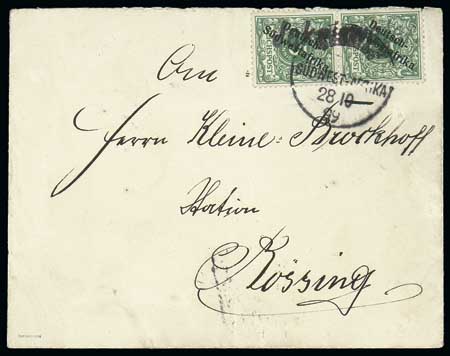 Deutsch-
Südwest-Afrika
REICHSPOST
SÜDWEST-AFRIKA
28 10
99
An
Herrn Kleine-Brockhoff
Station
Rössing